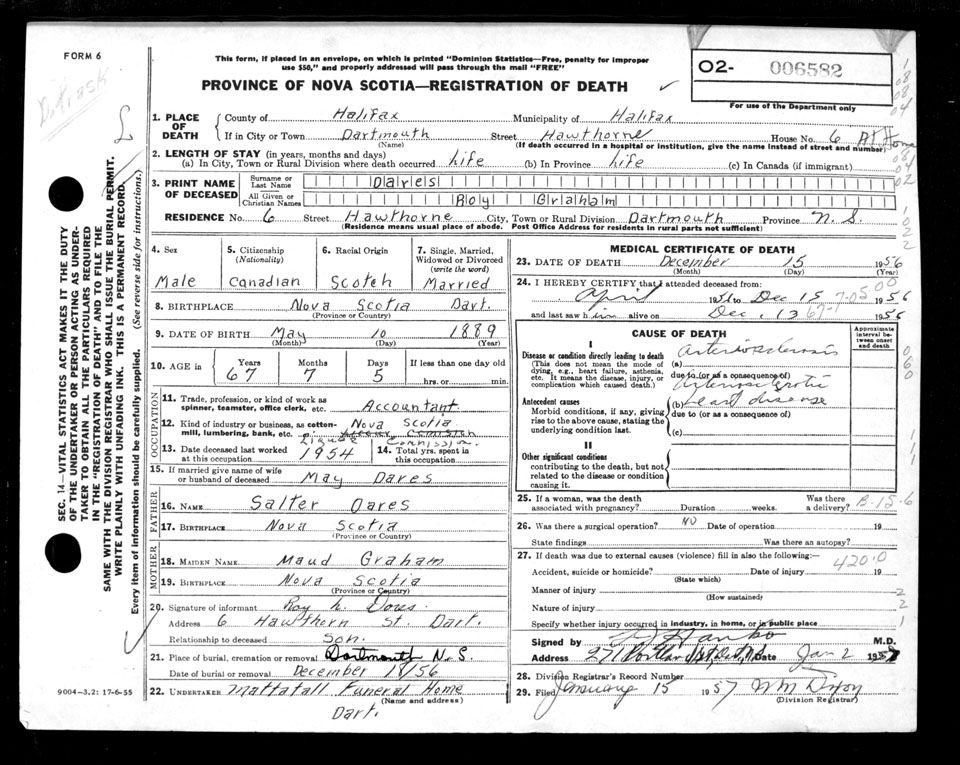 FORM 6
This form, if placed in an envelope, on which is printed "Dominion Statistics—Free, penalty for improper
use $50," and properly addressed will pass through the mail "FREE"
PROVINCE OF NOVA SCOTIA—REGISTRATION OF DEATH
02- 006582
For use of the Department only
SEC. 14—VITAL STATISTICS ACT MAKES IT THE DUTY
OF THE UNDERTAKER OR PERSON ACTING AS UNDER-
TAKER TO OBTAIN ALL THE PARTICULARS REQUIRED
IN THE "REGISTRATION OF DEATH" AND TO FILE THE
SAME WITH THE DIVISION REGISTRAR WHO SHALL ISSUE THE BURIAL PERMIT.
WRITE PLAINLY WITH UNFADING INK. THIS IS A PERMANENT RECORD.
Every item of information should be carefully supplied. (See reverse side for instructions.)
1. PLACE OF DEATH
County of Halifax Municipality of Halifax
If in City or Town Dartmouth Street Hawthorne House No. 6 At Home
(Name) (If death occurred in a hospital or institution, give the name instead of street and number)
2. LENGTH OF STAY (in years, months and days)
(a) In City, Town or Rural Division where death occurred Life (b) In Province Life (c) In Canada (if immigrant)
3. PRINT NAME OF DECEASED
Surname or Last Name Dares
All Given or Christian Names Roy Graham
RESIDENCE No. 6 Street Hawthorne City, Town or Rural Division Dartmouth Province N.S.
(Residence means usual place of abode. Post Office Address for residents in rural parts not sufficient)
4. Sex
Male
5. Citizenship (Nationality)
Canadian
6. Racial Origin
Scotch
7. Single, Married, Widowed or Divorced (write the word)
Married
8. BIRTHPLACE Nova Scotia Dart.
(Province or Country)
9. DATE OF BIRTH May 10 1889
(Month) (Day) (Year)
10. AGE in
Years 67 Months 7 Days 5
If less than one day old
hrs. or min.
OCCUPATION
11. Trade, profession, or kind of work as
spinner, teamster, office clerk, etc. Accountant
12. Kind of industry or business, as cotton-
mill, lumbering, bank, etc. Nova Scotia
Liquor Commission
13. Date deceased last worked
at this occupation 1954
14. Total yrs. spent in
this occupation
15. If married give name of wife
or husband of deceased May Dares
FATHER
16. NAME Salter Dares
17. BIRTHPLACE Nova Scotia
(Province or Country)
MOTHER
18. MAIDEN NAME Maud Graham
19. BIRTHPLACE Nova Scotia
(Province or Country)
20. Signature of informant Roy
Address 6 Hawthorn St. Dart.
Relationship to deceased Son.
21. Place of burial, cremation or removal Dartmouth N.S.
Date of burial or removal December 18/56
22. UNDERTAKER Mattatall Funeral Home
(Name and address)
Dart.
9004-3.2: 17-6-55
MEDICAL CERTIFICATE OF DEATH
23. DATE OF DEATH December 15 1956
(Month) (Day) (Year)
24. I HEREBY CERTIFY that I attended deceased from:
April 1951 to Dec 15 1956
and last saw him alive on Dec. 13 1956
CAUSE OF DEATH
Approximate interval between onset and death
I
Disease or condition directly leading to death
(This does not mean the mode of
dying, e.g., heart failure, asthenia,
etc. It means the disease, injury, or
complication which caused death.)
(a) arteriosclerosis
due to (or as a consequence of)
Arteriosclerotic
Antecedent causes
Morbid conditions, if any, giving
rise to the above cause, stating the
underlying condition last.
(b) heart disease
due to (or as a consequence of)
(c)
II
Other significant conditions
contributing to the death, but not
related to the disease or condition
causing it.
25. If a woman, was the death
associated with pregnancy? Duration weeks.
Was there
a delivery?
B-15.6
26. Was there a surgical operation? NO Date of operation 19
State findings Was there an autopsy?
27. If death was due to external causes (violence) fill in also the following:
420.0
Accident, suicide or homicide? Date of injury 19
(State which)
Manner of injury
(How sustained)
Nature of injury
Specify whether injury occurred in industry, in home, or in public place
Signed by M.D.
Address 271 Portland St, Dart, N.S Date Jan 2 1957
28. Division Registrar's Record Number
29. Filed January 15 1957 Wm Dixon
(Division Registrar)